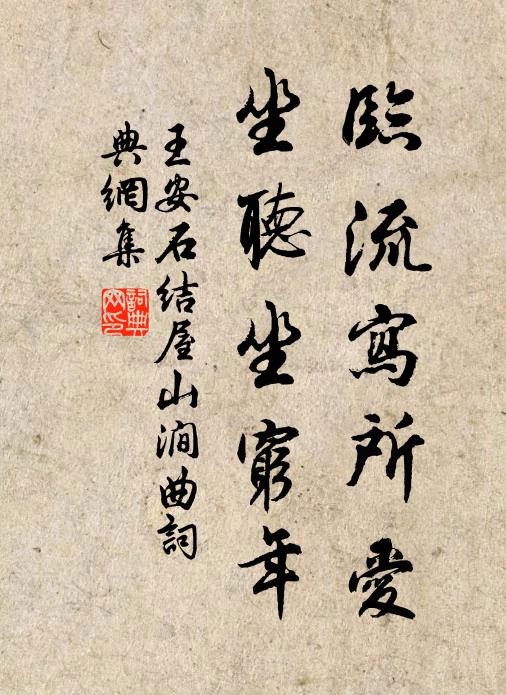 臨流寫所愛
坐聽坐窮年
王安石結屋山澗曲詞
典網集
詞典網印